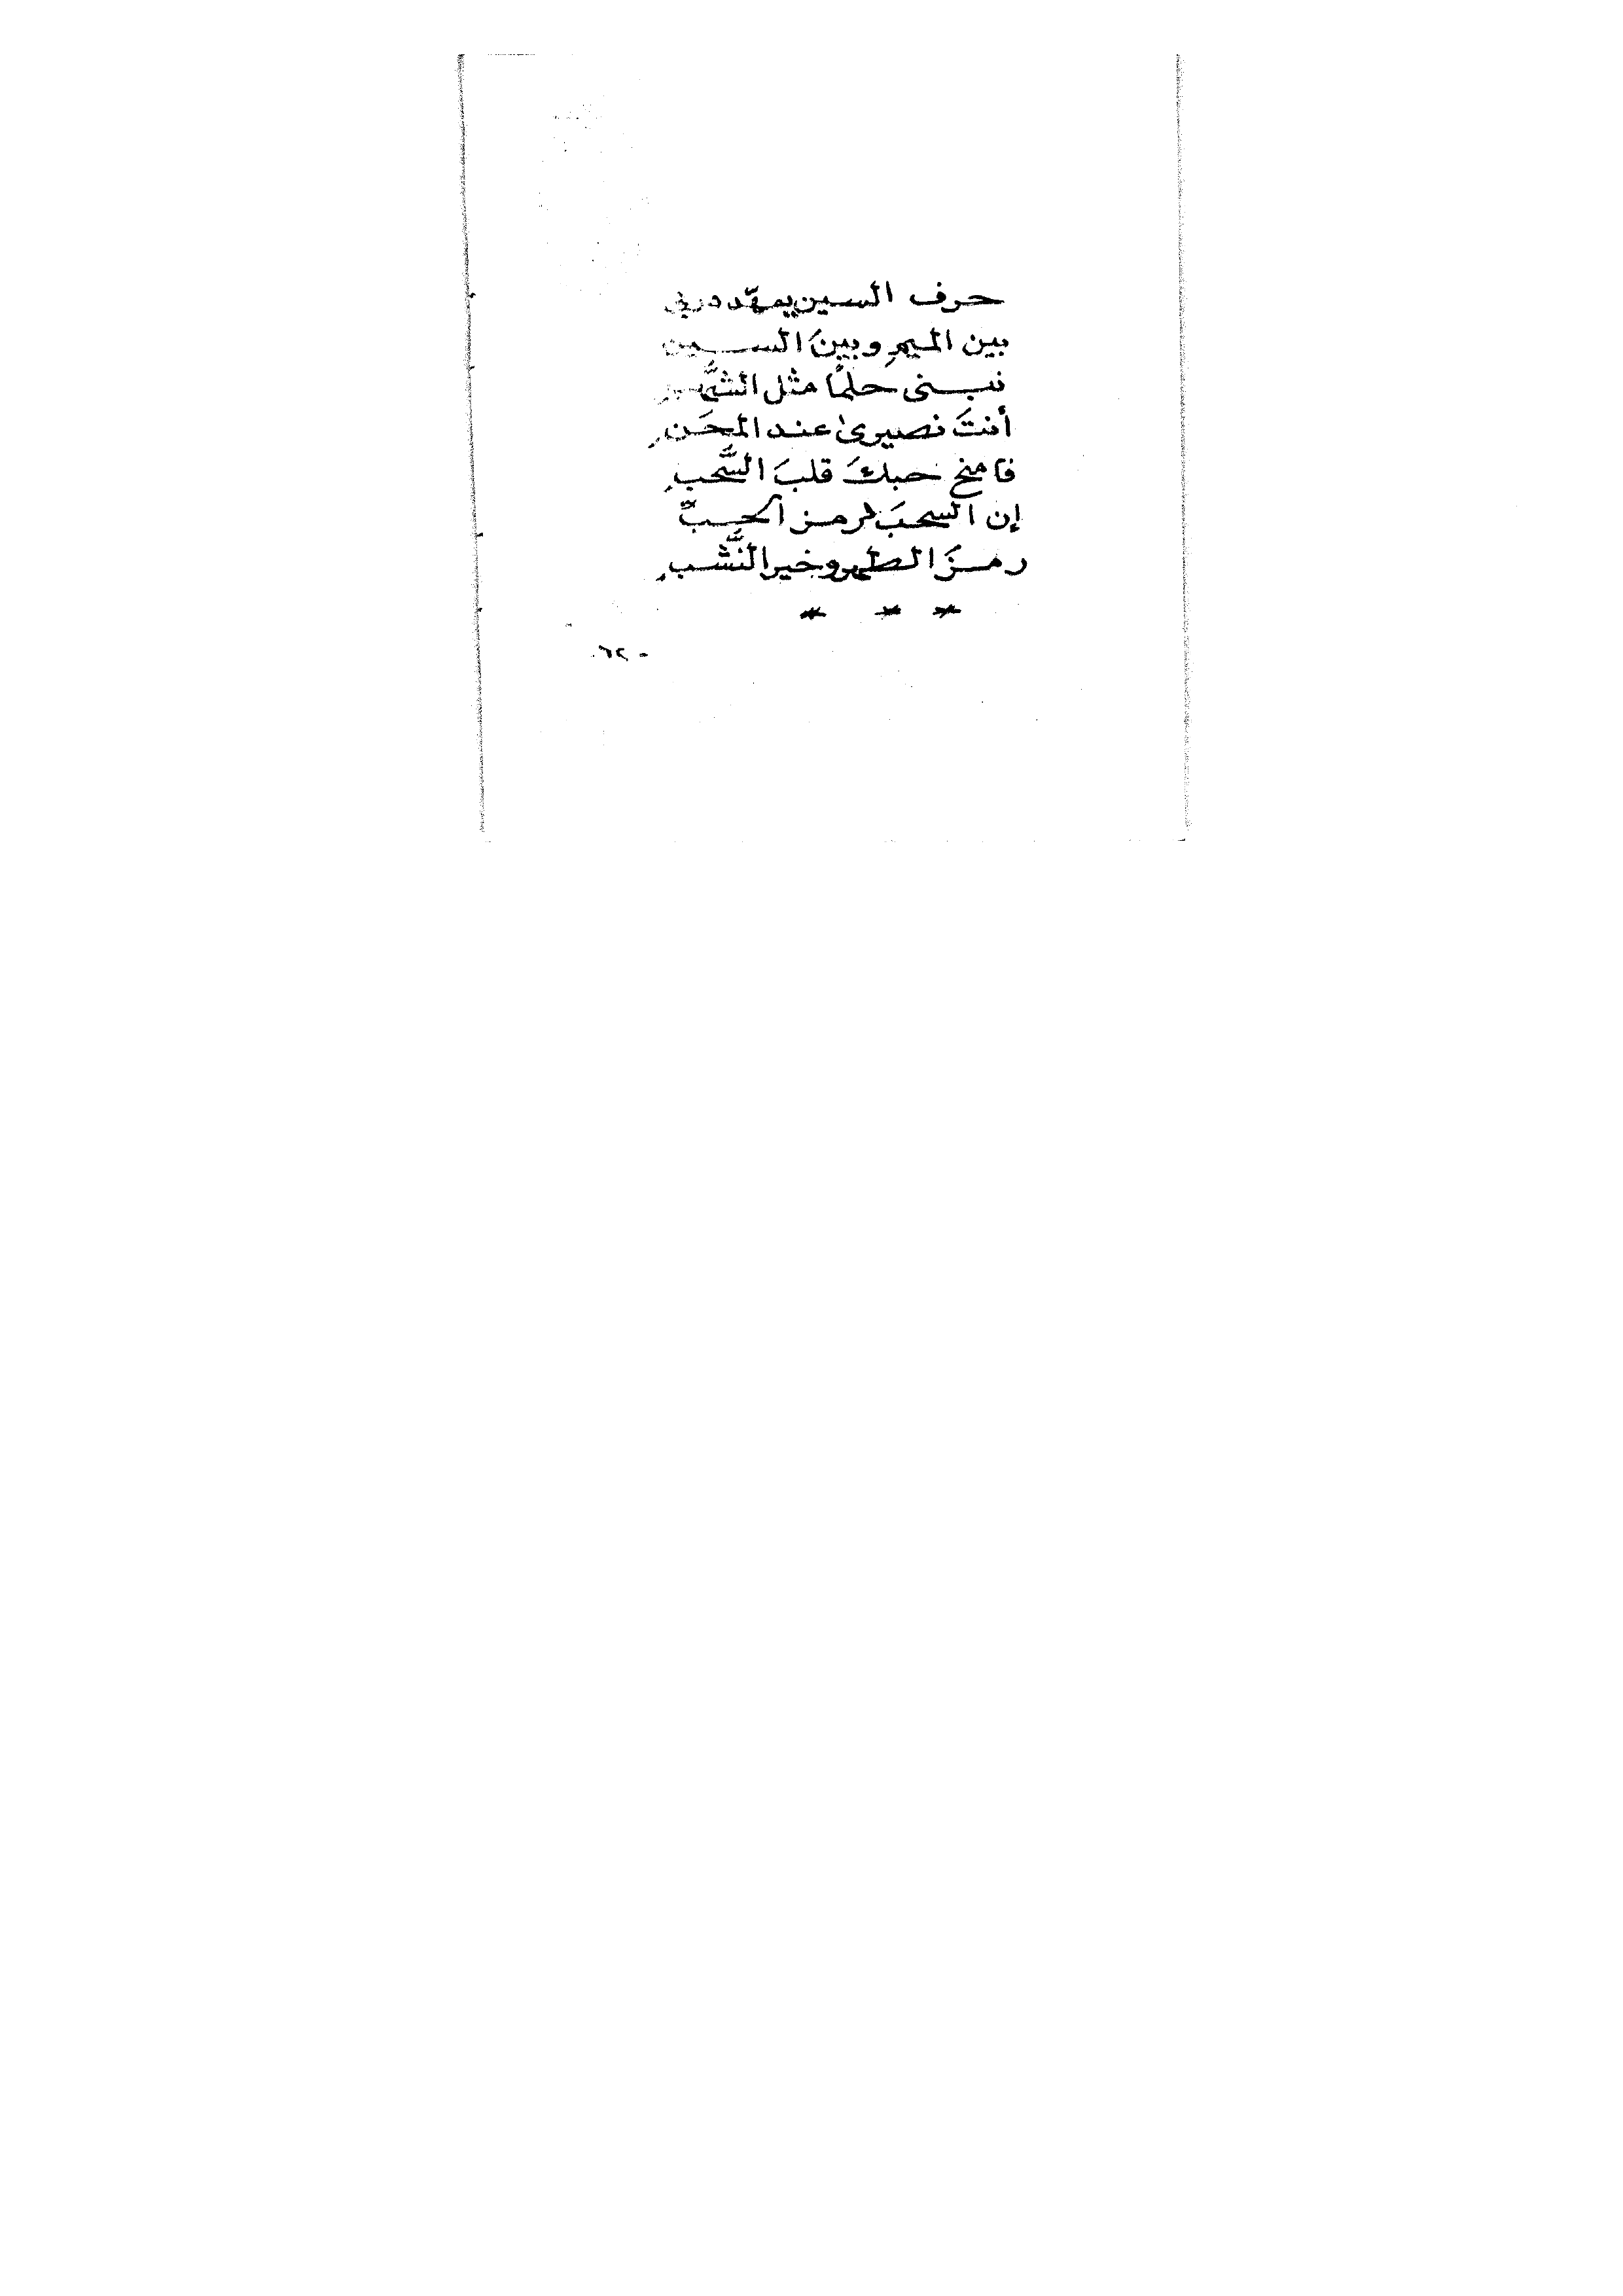 حرف السين يمهّد دربي
بين الميمِ وبينَ السين
نبنى حلمًا مثل الشَّمسِ
أنتَ نصيرى عند المحَنِ
فامنح حبكَ قلبَ السُّحبِ
إن السحبَ لرمز الحبِّ
رمزَ الطهر وخير النَّشبِ
* * *
- ٦٢